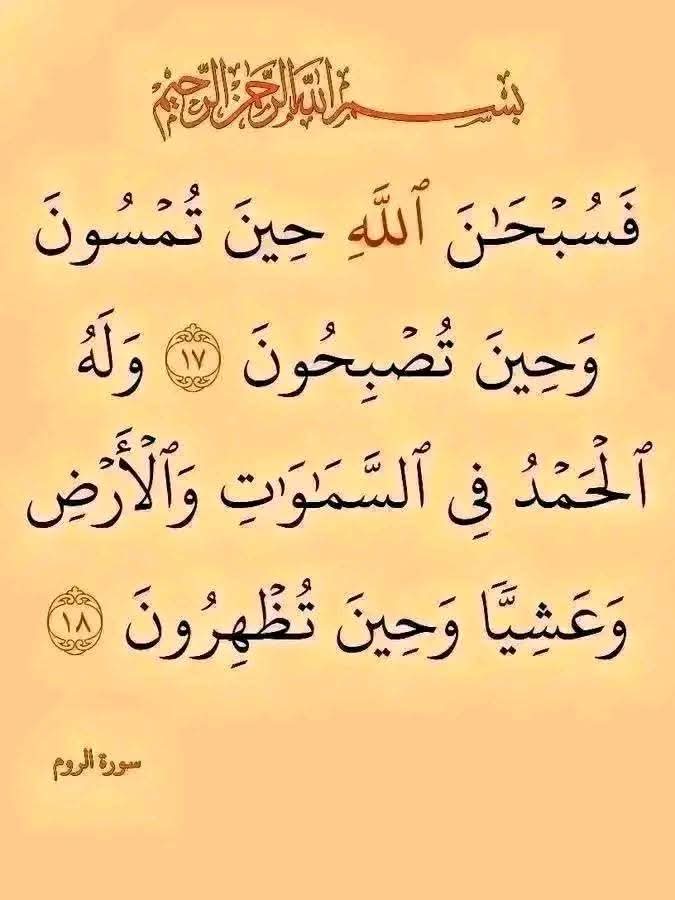 بسم الله الرحمن الرحيم
فَسُبْحَـٰنَ ٱللَّهِ حِينَ تُمْسُونَ
وَحِينَ تُصْبِحُونَ ١٧ وَلَهُ
ٱلْحَمْدُ فِي ٱلسَّمَـٰوَٰتِ وَٱلْأَرْضِ
وَعَشِيًّا وَحِينَ تُظْهِرُونَ ١٨
سورة الروم